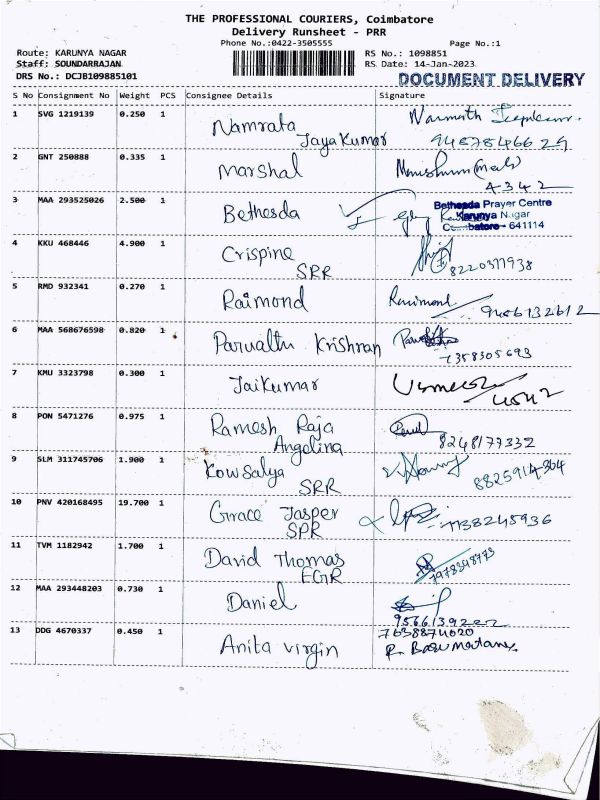 THE PROFESSIONAL COURIERS, Coimbatore
Delivery Runsheet - PRR
Phone No.:0422-3505555
Page No.:1
Route: KARUNYA NAGAR
RS No.: 1098851
Staff: SOUNDARRAJAN
RS Date: 14-Jan-2023
DRS No.: DCJB109885101
DOCUMENT DELIVERY
S No Consignment No Weight PCS Consignee Details Signature
1 SVG 1219139 0.250 1 Namrata
Jayakumar 9487846629
2 GNT 250888 0.335 1 Marshal
4342
3 MAA 293525026 2.500 1 Bethesda
Bethesda Prayer Centre
Karunya Nagar
Coimbatore - 641114
4 KKU 468446 4.900 1 Crispine
SRR 8220311938
5 RMD 932341 0.270 1 Raimond
9486132612
6 MAA 568676598 0.820 1 Parvathi Krishnan
7358305693
7 KMU 3323798 0.300 1 Jaikumar
8 PON 5471276 0.975 1 Ramesh Raja
Angelina 8248177332
9 SLM 311745706 1.900 1 Kowsalya
SRR 8825914304
10 PNV 420168495 19.700 1 Grace Jasper
SPR 7738245936
11 TVM 1182942 1.700 1 David Thomas
EGR 7978348773
12 MAA 293448203 0.730 1 Daniel
9566139222
13 DDG 4670337 0.450 1 Anita Virgin
7638874020
R. Basumatary